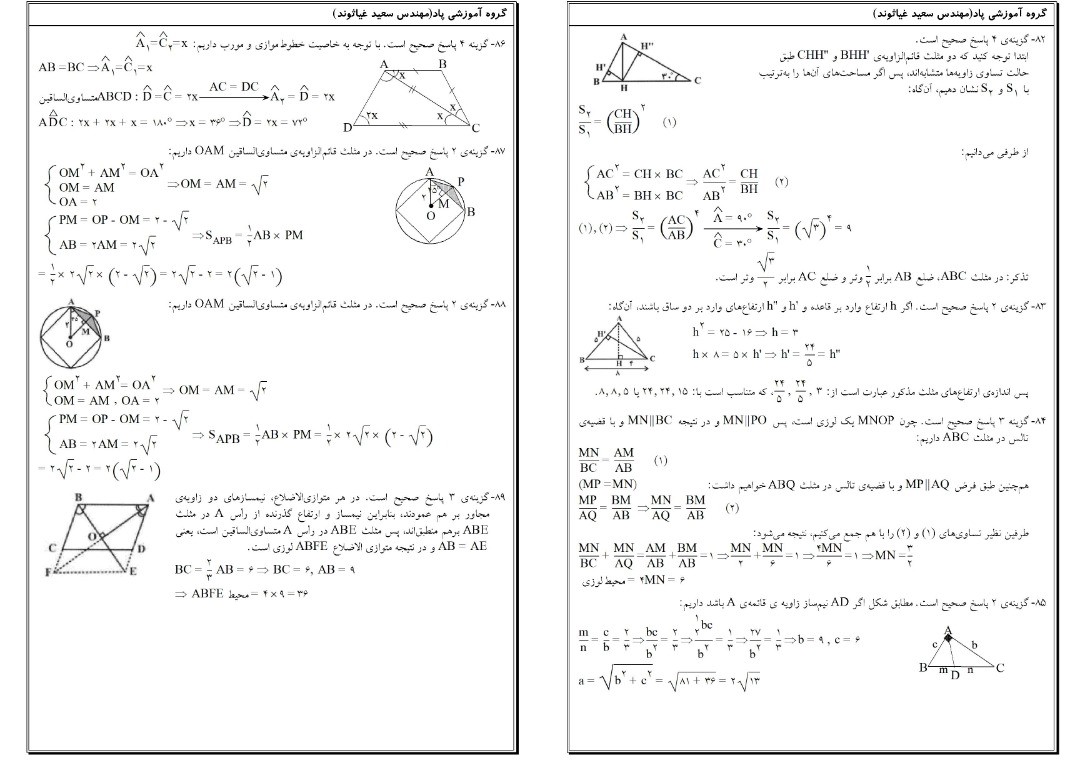 گروه آموزشی پاد(مهندس سعید غیاثوند)
۸۲- گزینه‌ی ۴ پاسخ صحیح است.
ابتدا توجه کنید که دو مثلث قائم‌الزاویه‌ی BHH' و CHH" طبق
حالت تساوی زاویه‌ها متشابه‌اند، پس اگر مساحت‌های آن‌ها را به‌ترتیب
با S۱ و S۲ نشان دهیم، آن‌گاه:
A H" H' ۳۰° B H C
S۲/S۱ = (CH/BH)^۲ (۱)
از طرفی می‌دانیم:
{ AC^۲ = CH × BC
AB^۲ = BH × BC ⇒ AC^۲/AB^۲ = CH/BH (۲)
(۱),(۲) ⇒ S۲/S۱ = (AC/AB)^۴ Â = ۹۰° Ĉ = ۳۰° → S۲/S۱ = (√۳)^۴ = ۹
تذکر: در مثلث ABC، ضلع AB برابر ۱/۲ وتر و ضلع AC برابر √۳/۲ وتر است.
۸۳- گزینه‌ی ۲ پاسخ صحیح است. اگر h ارتفاع وارد بر قاعده و h' و h" ارتفاع‌های وارد بر دو ساق باشند، آن‌گاه:
A H' ۵ ۵ B H ۴ C ۸
h^۲ = ۲۵ - ۱۶ ⇒ h = ۳
h × ۸ = ۵ × h' ⇒ h' = ۲۴/۵ = h"
پس اندازه‌ی ارتفاع‌های مثلث مذکور عبارت است از: ۳ , ۲۴/۵ , ۲۴/۵، که متناسب است با: ۱۵ ,۲۴ ,۲۴ یا ۵ ,۸ ,۸.
۸۴- گزینه ۳ پاسخ صحیح است. چون MNOP یک لوزی است، پس MN||PO و در نتیجه MN||BC و با قضیه‌ی
تالس در مثلث ABC داریم:
MN/BC = AM/AB (۱)
هم‌چنین طبق فرض MP||AQ و با قضیه‌ی تالس در مثلث ABQ خواهیم داشت: (MP = MN)
MP/AQ = BM/AB ⇒ MN/AQ = BM/AB (۲)
طرفین نظیر تساوی‌های (۱) و (۲) را با هم جمع می‌کنیم، نتیجه می‌شود:
MN/BC + MN/AQ = AM/AB + BM/AB = ۱ ⇒ MN/۲ + MN/۶ = ۱ ⇒ ۴MN/۶ = ۱ ⇒ MN = ۳/۲
محیط لوزی = ۴MN = ۶
۸۵- گزینه‌ی ۲ پاسخ صحیح است. مطابق شکل اگر AD نیم‌ساز زاویه ی قائمه‌ی A باشد داریم:
m/n = c/b = ۲/۳ ⇒ bc/b^۲ = ۲/۳ ⇒ ۱/۲ bc/b^۲ = ۱/۳ ⇒ ۲۷/b^۲ = ۱/۳ ⇒ b = ۹ , c = ۶
a = √(b^۲ + c^۲) = √(۸۱ + ۳۶) = ۲√۱۳
A c b B m D n C
گروه آموزشی پاد(مهندس سعید غیاثوند)
۸۶- گزینه ۴ پاسخ صحیح است. با توجه به خاصیت خطوط موازی و مورب داریم: Â۱=Ĉ۲=x
AB =BC ⇒ Â۱=Ĉ۱=x
متساوی‌الساقین ABCD : D̂ = Ĉ = ۲x AC = DC → Â۲ = D̂ = ۲x
ADC : ۲x + ۲x + x = ۱۸۰° ⇒ x = ۳۶° ⇒ D̂ = ۲x = ۷۲°
A B x x x ۲x D C
۸۷- گزینه‌ی ۲ پاسخ صحیح است. در مثلث قائم‌الزاویه‌ی متساوی‌الساقین OAM داریم:
{ OM^۲ + AM^۲ = OA^۲
OM = AM ⇒ OM = AM = √۲
OA = ۲
{ PM = OP - OM = ۲ - √۲
AB = ۲AM = ۲√۲ ⇒ S APB = ۱/۲ AB × PM
= ۱/۲ × ۲√۲ × (۲ - √۲) = ۲√۲ - ۲ = ۲(√۲ - ۱)
A P ۲ ۴۵ M O B
۸۸- گزینه‌ی ۲ پاسخ صحیح است. در مثلث قائم‌الزاویه‌ی متساوی‌الساقین OAM داریم:
A P ۲ ۴۵ M O B
{ OM^۲ + AM^۲ = OA^۲
OM = AM , OA = ۲ ⇒ OM = AM = √۲
{ PM = OP - OM = ۲ - √۲
AB = ۲AM = ۲√۲ ⇒ S APB = ۱/۲ AB × PM = ۱/۲ × ۲√۲ × (۲ - √۲)
= ۲√۲ - ۲ = ۲(√۲ - ۱)
۸۹- گزینه‌ی ۳ پاسخ صحیح است. در هر متوازی‌الاضلاع، نیمسازهای دو زاویه‌ی
مجاور بر هم عمودند، بنابراین نیمساز و ارتفاع گذرنده از رأس A در مثلث
ABE برهم منطبق‌اند، پس مثلث ABE در رأس A متساوی‌الساقین است، یعنی
AB = AE و در نتیجه متوازی الاضلاع ABFE لوزی است.
BC = ۲/۳ AB = ۶ ⇒ BC = ۶, AB = ۹
⇒ ABFE محیط = ۴ × ۹ = ۳۶
B A O C D F E